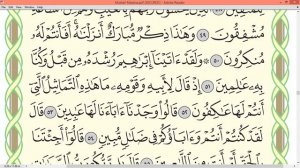 مُشْفِقُونَ ٤٩ وَهَٰذَا ذِكْرٌ مُّبَارَكٌ أَنزَلْنَٰهُ أَفَأَنتُمْ لَهُۥ
مُنكِرُونَ ٥٠ ۞ وَلَقَدْ ءَاتَيْنَآ إِبْرَٰهِيمَ رُشْدَهُۥ مِن قَبْلُ وَكُنَّا
بِهِۦ عَٰلِمِينَ ٥١ إِذْ قَالَ لِأَبِيهِ وَقَوْمِهِۦ مَا هَٰذِهِ ٱلتَّمَاثِيلُ ٱلَّتِىٓ
أَنتُمْ لَهَا عَٰكِفُونَ ٥٢ قَالُوا۟ وَجَدْنَآ ءَابَآءَنَا لَهَا عَٰبِدِينَ ٥٣ قَالَ
لَقَدْ كُنتُمْ أَنتُمْ وَءَابَآؤُكُمْ فِى ضَلَٰلٍ مُّبِينٍ ٥٤ قَالُوٓا۟ أَجِئْتَنَا